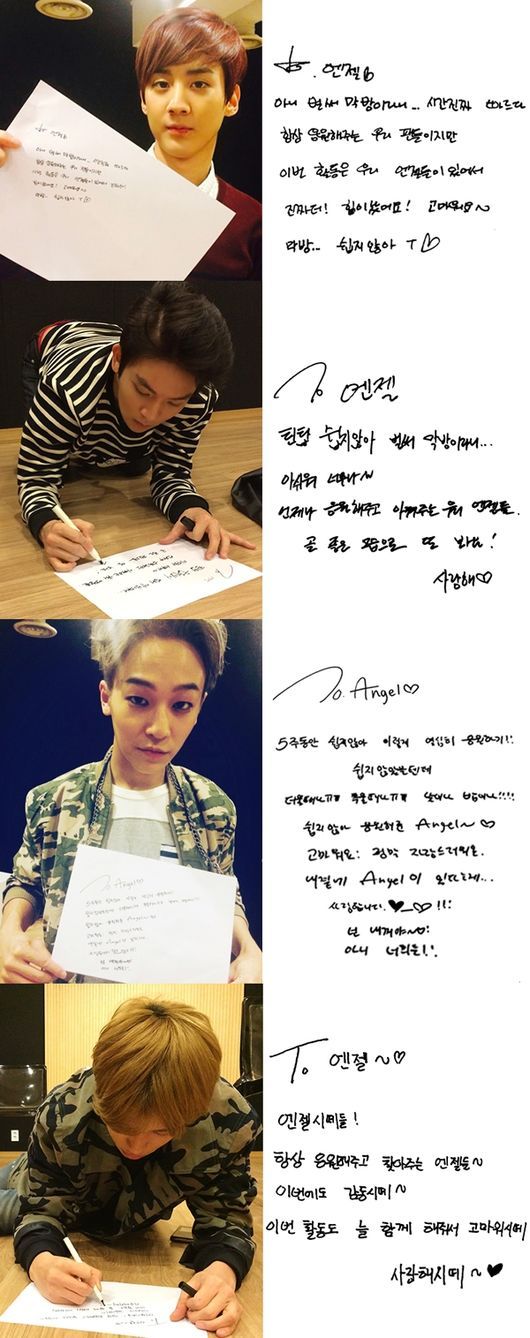 To. 엔젤
아니 벌써 막방이라니... 시간진짜 빠르다
항상 응원해주는 우리 팬들이지만
이번 활동은 우리 엔젤들이 있어서
진짜더! 힘이났어요! 고마워요~
막방... 쉽지않아 T♡
To 엔젤
틴탑 쉽지않아 벌써 막방이라니...
아쉬워 너무나~
언제나 응원해주고 아껴주는 우리 엔젤들.
곧 좋은 모습으로 또 봐요!
사랑해♡
To. Angel♡
5주동안 쉽지않아 이렇게 열심히 응원하기!!
쉽지 않았을텐데
더울때나 추울때나 낮이나 밤이나!!!!
쉽지않아 응원해준 Angel~ ♡
고마워요. 정말 자랑스러워요.
내곁에 Angel이
사랑합니다. ♥_♡!!!
넌 내꺼야~
아니 너희들!
To 엔젤~♡
엔젤시떼들!
항상 응원해주고 찾아주는 엔젤들~
이번에도 감동시떼~
이번 활동도 늘 함께 해줘서 고마워시떼
사랑해시떼~♥